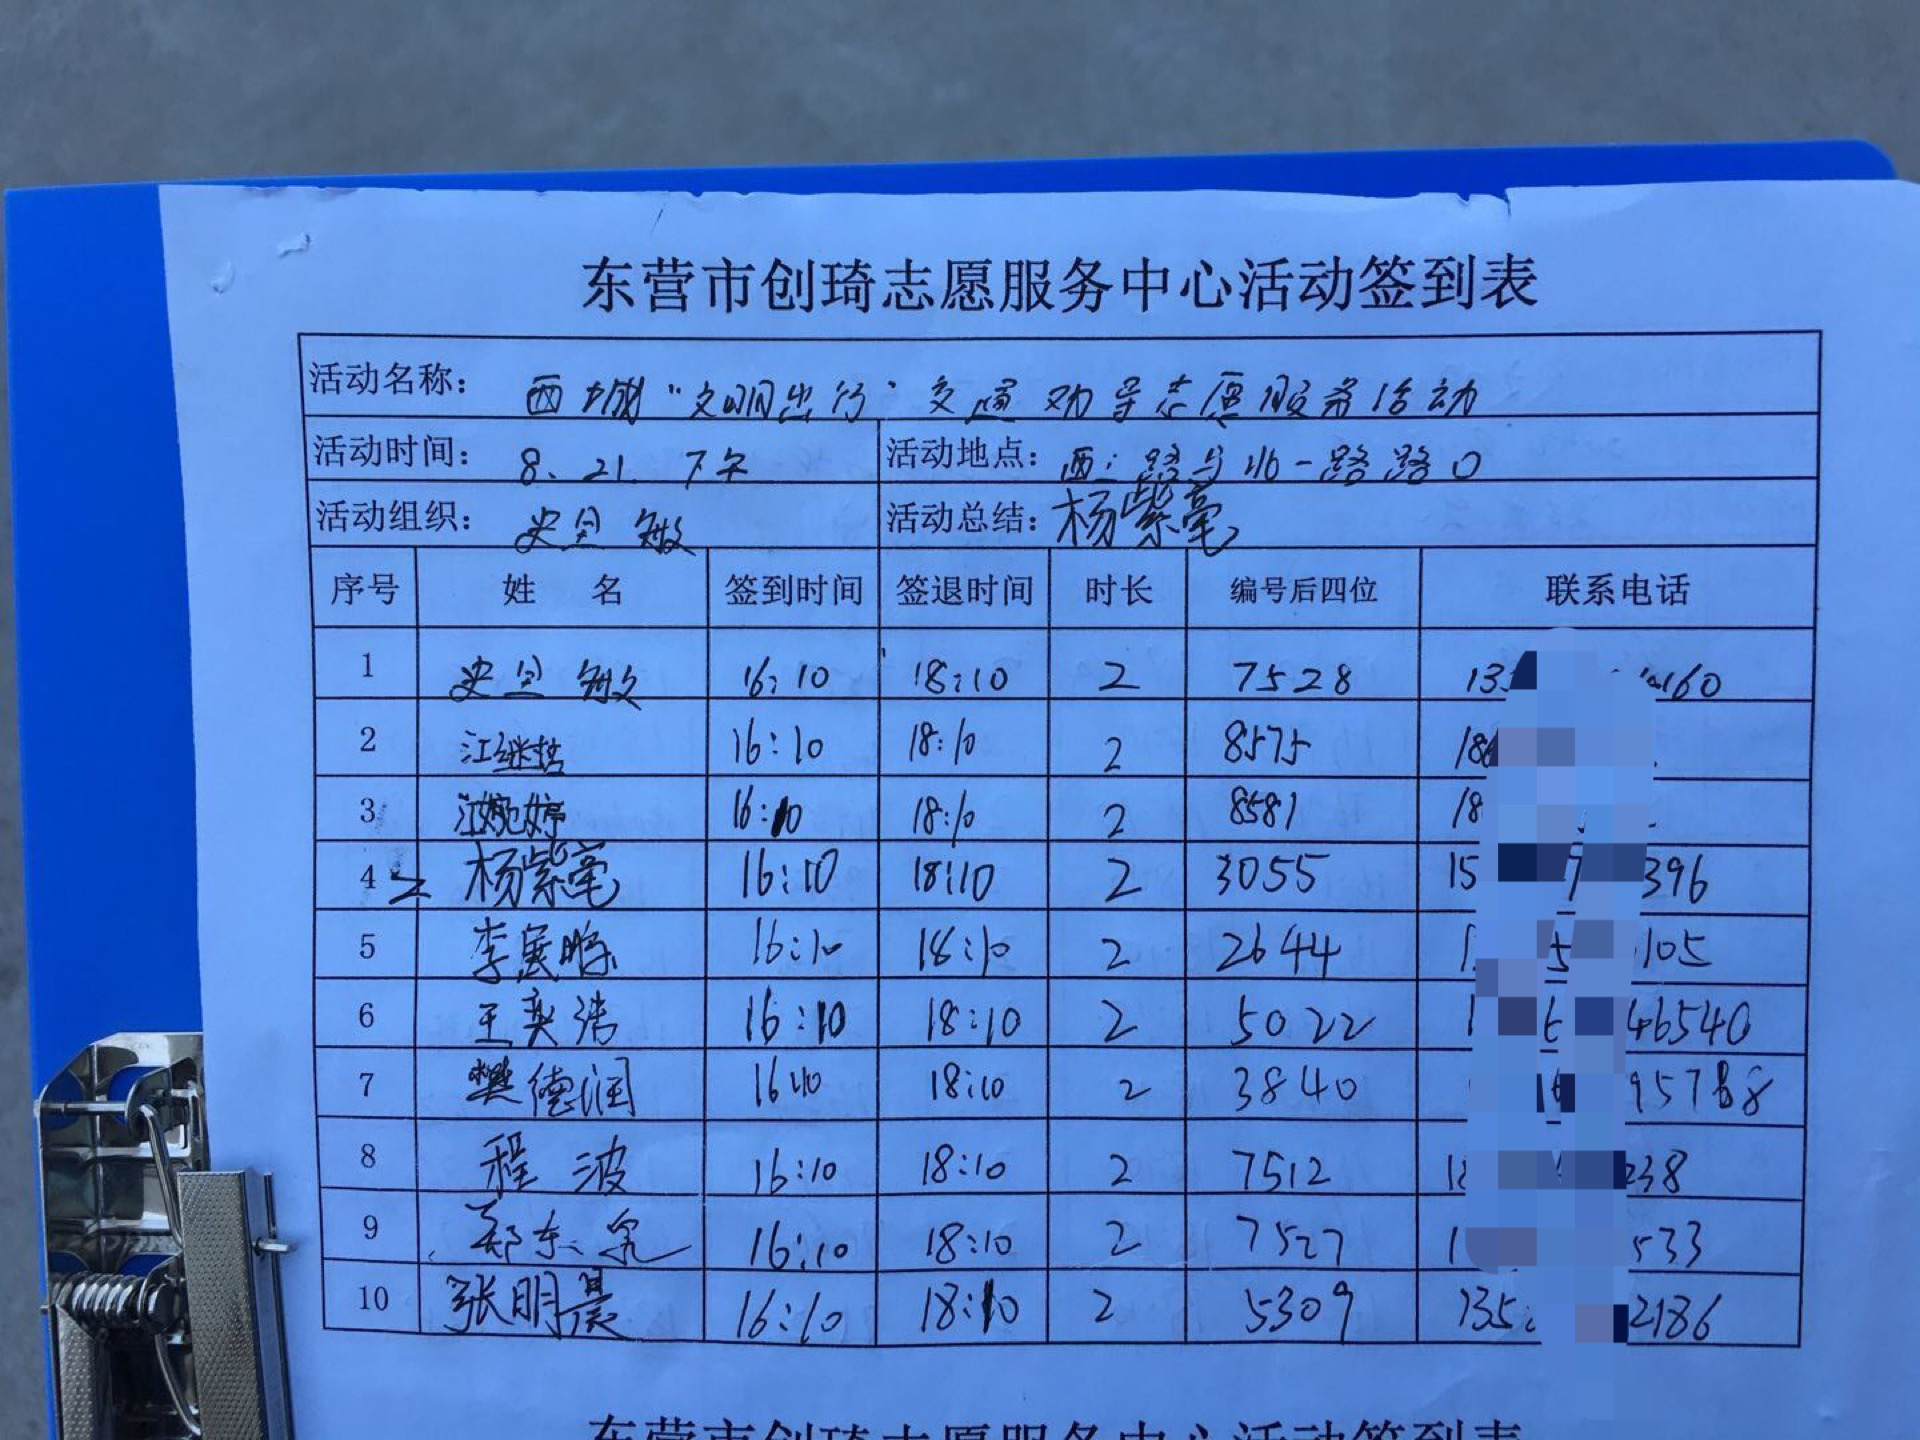 东营市创琦志愿服务中心活动签到表
活动名称： 西城“文明出行”交通劝导志愿服务活动
活动时间： 8、21. 下午 活动地点： 西二路与北一路路口
活动组织： 史 敏 活动总结： 杨紫毫
序号 姓 名 签到时间 签退时间 时长 编号后四位 联系电话
1 史 敏 16:10 18:10 2 7528 160
2 江继哲 16:10 18:10 2 8575 18
3 江婉婷 16:10 18:10 2 8581 18
4 杨紫毫 16:10 18:10 2 3055 15 396
5 李展鹏 16:10 18:10 2 2644 1 105
6 王奕浩 16:10 18:10 2 5022 1 46540
7 樊德润 16:10 18:10 2 3840
8 程 波 16:10 18:10 2 7512 18 238
9 郑东 16:10 18:10 2 7527 1 533
10 张明晨 16:10 18:10 2 5309 135 2186
东营市创琦志愿服务中心活动签到表